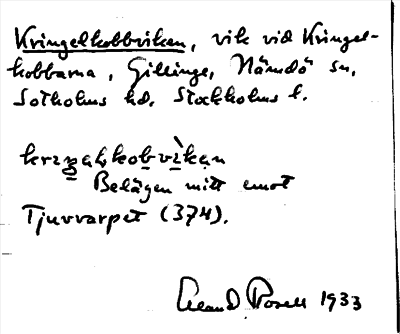 Kringelkobbviken, vik vid Kringel-
kobbarna, Gillinge, Nämdö sn,
Sotholms hd. Stockholms l.
Belägen mitt emot
Tjuvvarpet (374).
1933